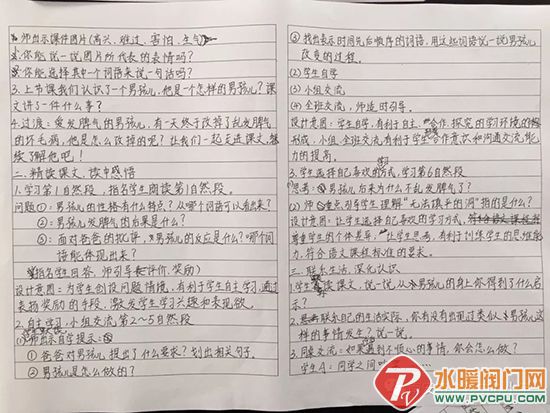 1.师出示课件图片(高兴、难过、害怕、生气)
2.你能说一说图片所代表的表情吗?
你能选择其中一个词语来说一句话吗?
3.上节课我们认识了一个男孩儿,他是一个怎样的男孩儿?课
文讲了一件什么事?
4.过渡:爱发脾气的男孩儿,有一天终于改掉了乱发脾气
的坏毛病,他是怎么改掉的呢?让我们一起走进课文,继
续了解他吧!
二、精读课文,读中感悟
1.学习第1自然段,指名学生朗读第1自然段。
问题①:男孩儿的性格有什么特点?从哪个词可以看出来?
②:男孩儿发脾气的后果是什么?
③:面对爸爸的批评,男孩儿的反应是什么?哪个词
语能体现出来?
(指名生回答,师引导评价、奖励)
设计意图:为学生创设问题情境,有利于学生自主学习,通过
表扬奖励的手段,激发学生学习兴趣和表现欲。
2.自主学习,小组交流第2~5自然段
(1)师出示自学提示:
①爸爸对男孩儿提出了什么要求?划出相关句子。
②男孩儿是怎么做的?
③找出表示时间先后顺序的词语,用这些词语说一说男孩儿
改变的过程。
(2)学生自学
(3)小组交流
(4)全班交流,师适时引导。
设计意图:学生自学,有利于自主、合作、探究的学习环境的
形成,小组、全班交流有利于学生合作意识和沟通交流能
力的提高。
3.学生选择自己喜欢的方式,学习第6自然段
思考:男孩儿后来为什么不乱发脾气了?
(1)师重点引导学生理解"无法填平的洞"指的是什么?
设计意图:让学生选择自己喜欢的学习方式,
尊重学生的个体差异,让学生思考,有利于训练学生的思维能
力,符合语文课程标准的要求。
三、联系生活,深化认识
1.学生读课文,说一说从男孩儿的身上你得到了什么启
示?
2.联系自己的生活实际,你有没有出现过类似男孩儿这
样的事情发生?说一说。
3.同桌交流:如果遇到不顺心的事情,你会怎么做?
学生A:同学之间
水暖阀门网
WWW.PVCPU.COM